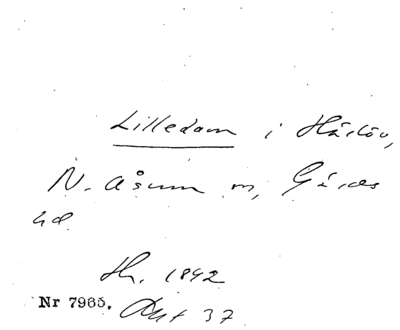 Lilledam i Hårlöv,
N. Åsum sn, Gärds
hd.
Hr. 1842
Nr 7965. Akt 37